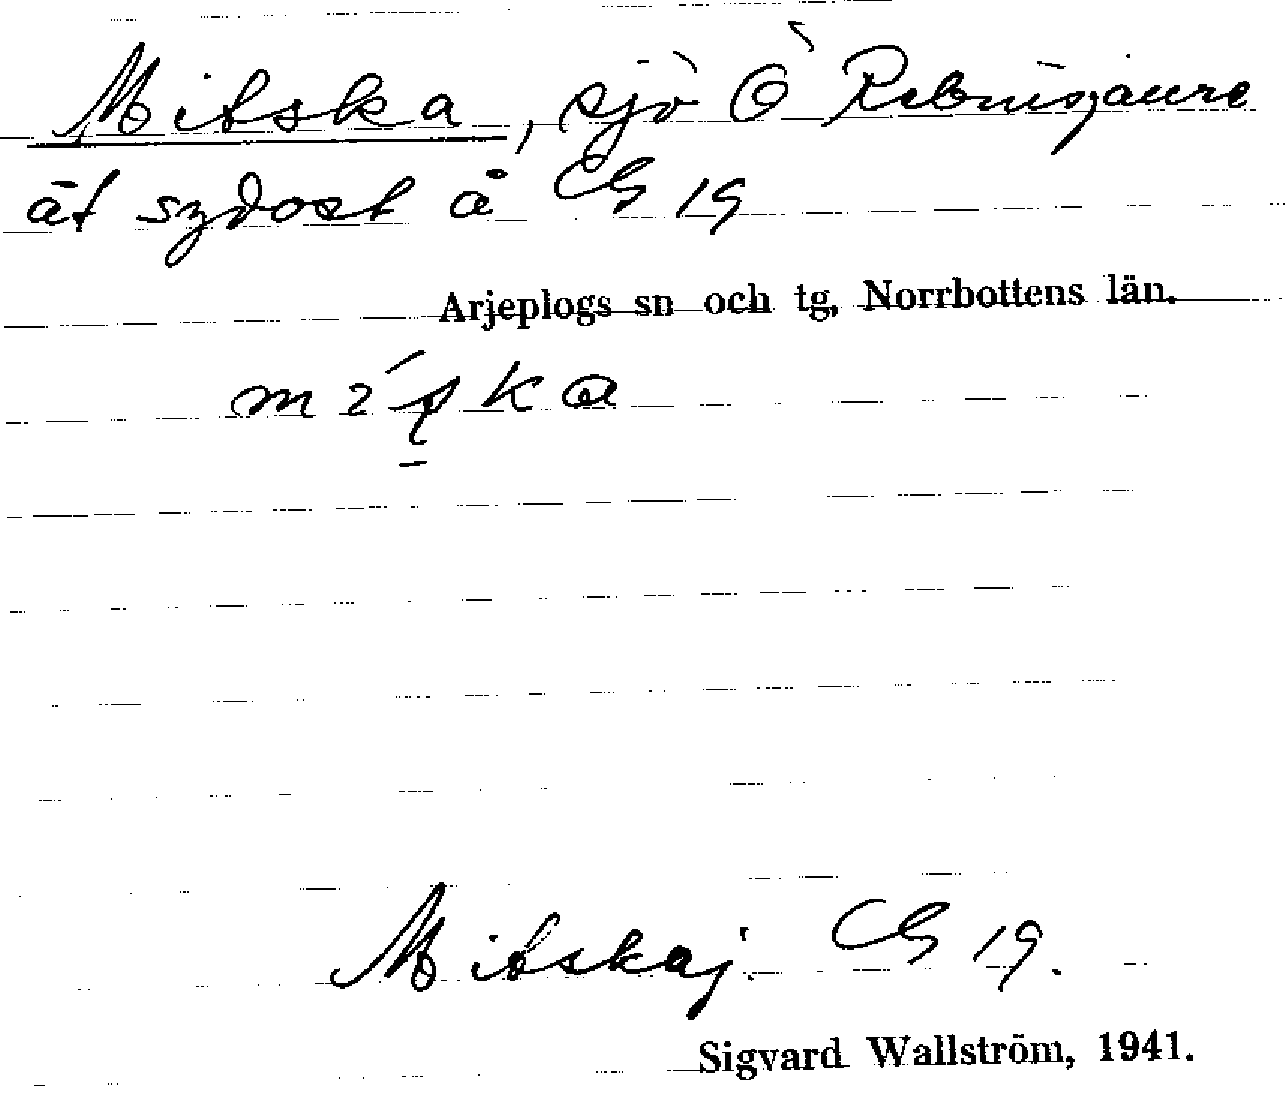 Mitska, sjö Ö Rebnisjaure
åt sydost å GS 19
Arjeplogs sn och tg, Norrbottens län.
Mitskaj. GS 19.
Sigvard Wallström, 1941.